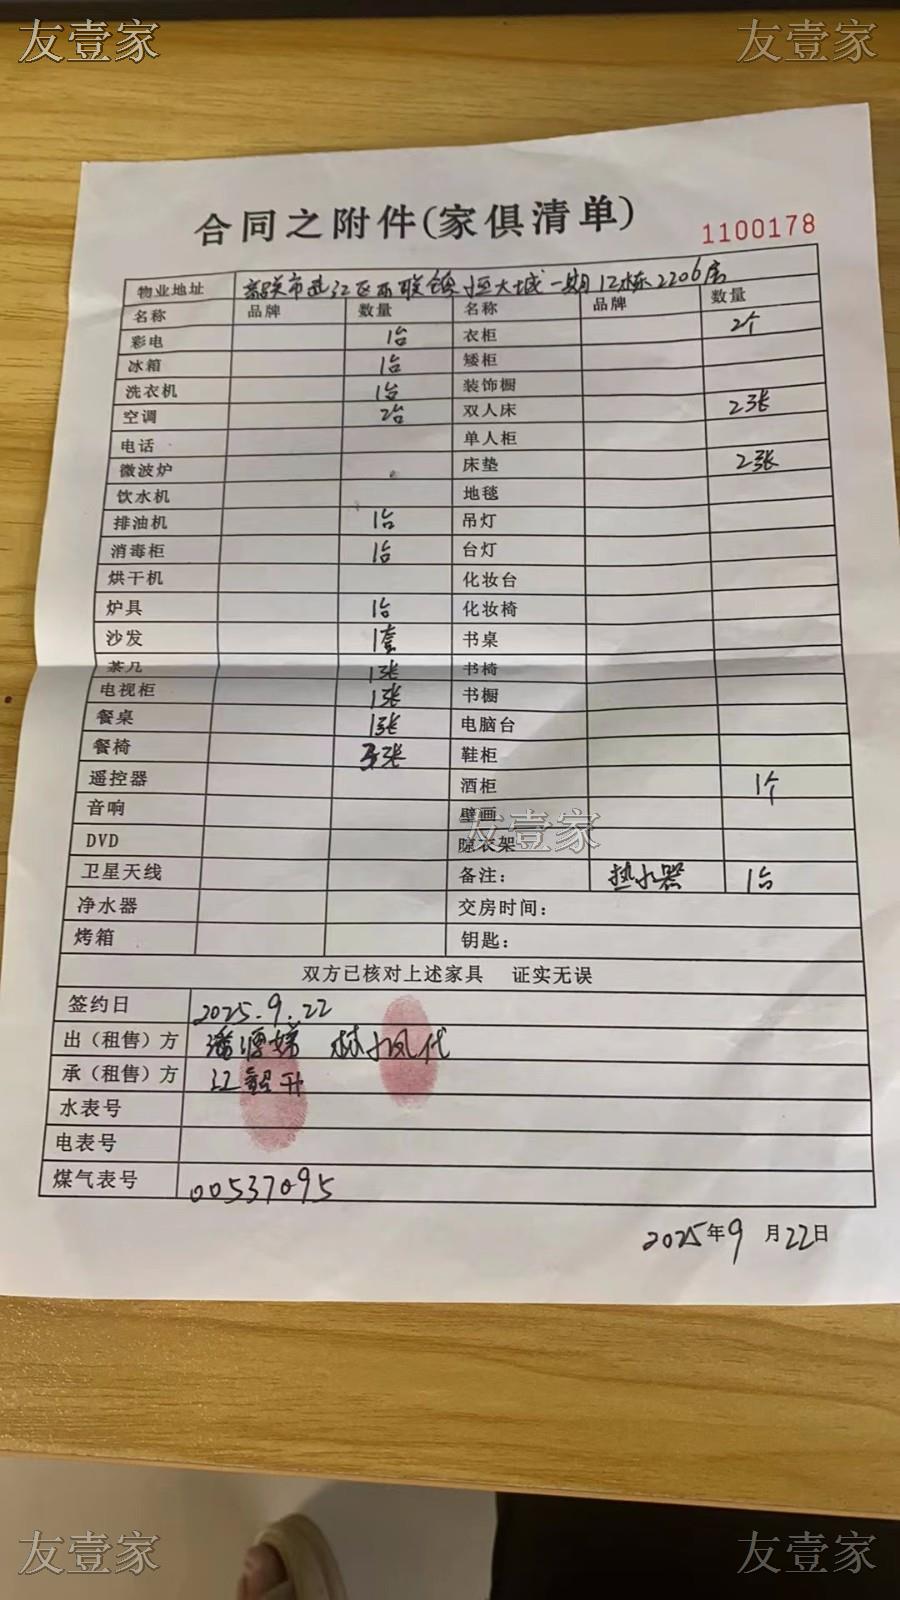 友壹家 友壹家
合同之附件(家俱清单)
1100178
物业地址 韶关市武江区西联镇恒大城一期12栋2206房
名称 品牌 数量 名称 品牌 数量
彩电 1台 衣柜 2个
冰箱 1台 矮柜
洗衣机 1台 装饰橱
空调 2台 双人床 2张
电话 单人柜
微波炉 床垫 2张
饮水机 地毯
排油机 1台 吊灯
消毒柜 1台 台灯
烘干机 化妆台
炉具 1台 化妆椅
沙发 1套 书桌
茶几 1张 书椅
电视柜 1张 书橱
餐桌 1张 电脑台
餐椅 张 鞋柜
遥控器 酒柜 1个
音响 壁画
友壹家
DVD 晾衣架
卫星天线 备注： 热水器 1台
净水器 交房时间：
烤箱 钥匙：
双方已核对上述家具 证实无误
签约日 2025.9.22
出（租售）方 潘 林小凤代
承（租售）方 江韶升
水表号
电表号
煤气表号 00537095
2025年9月22日
友壹家 友壹家